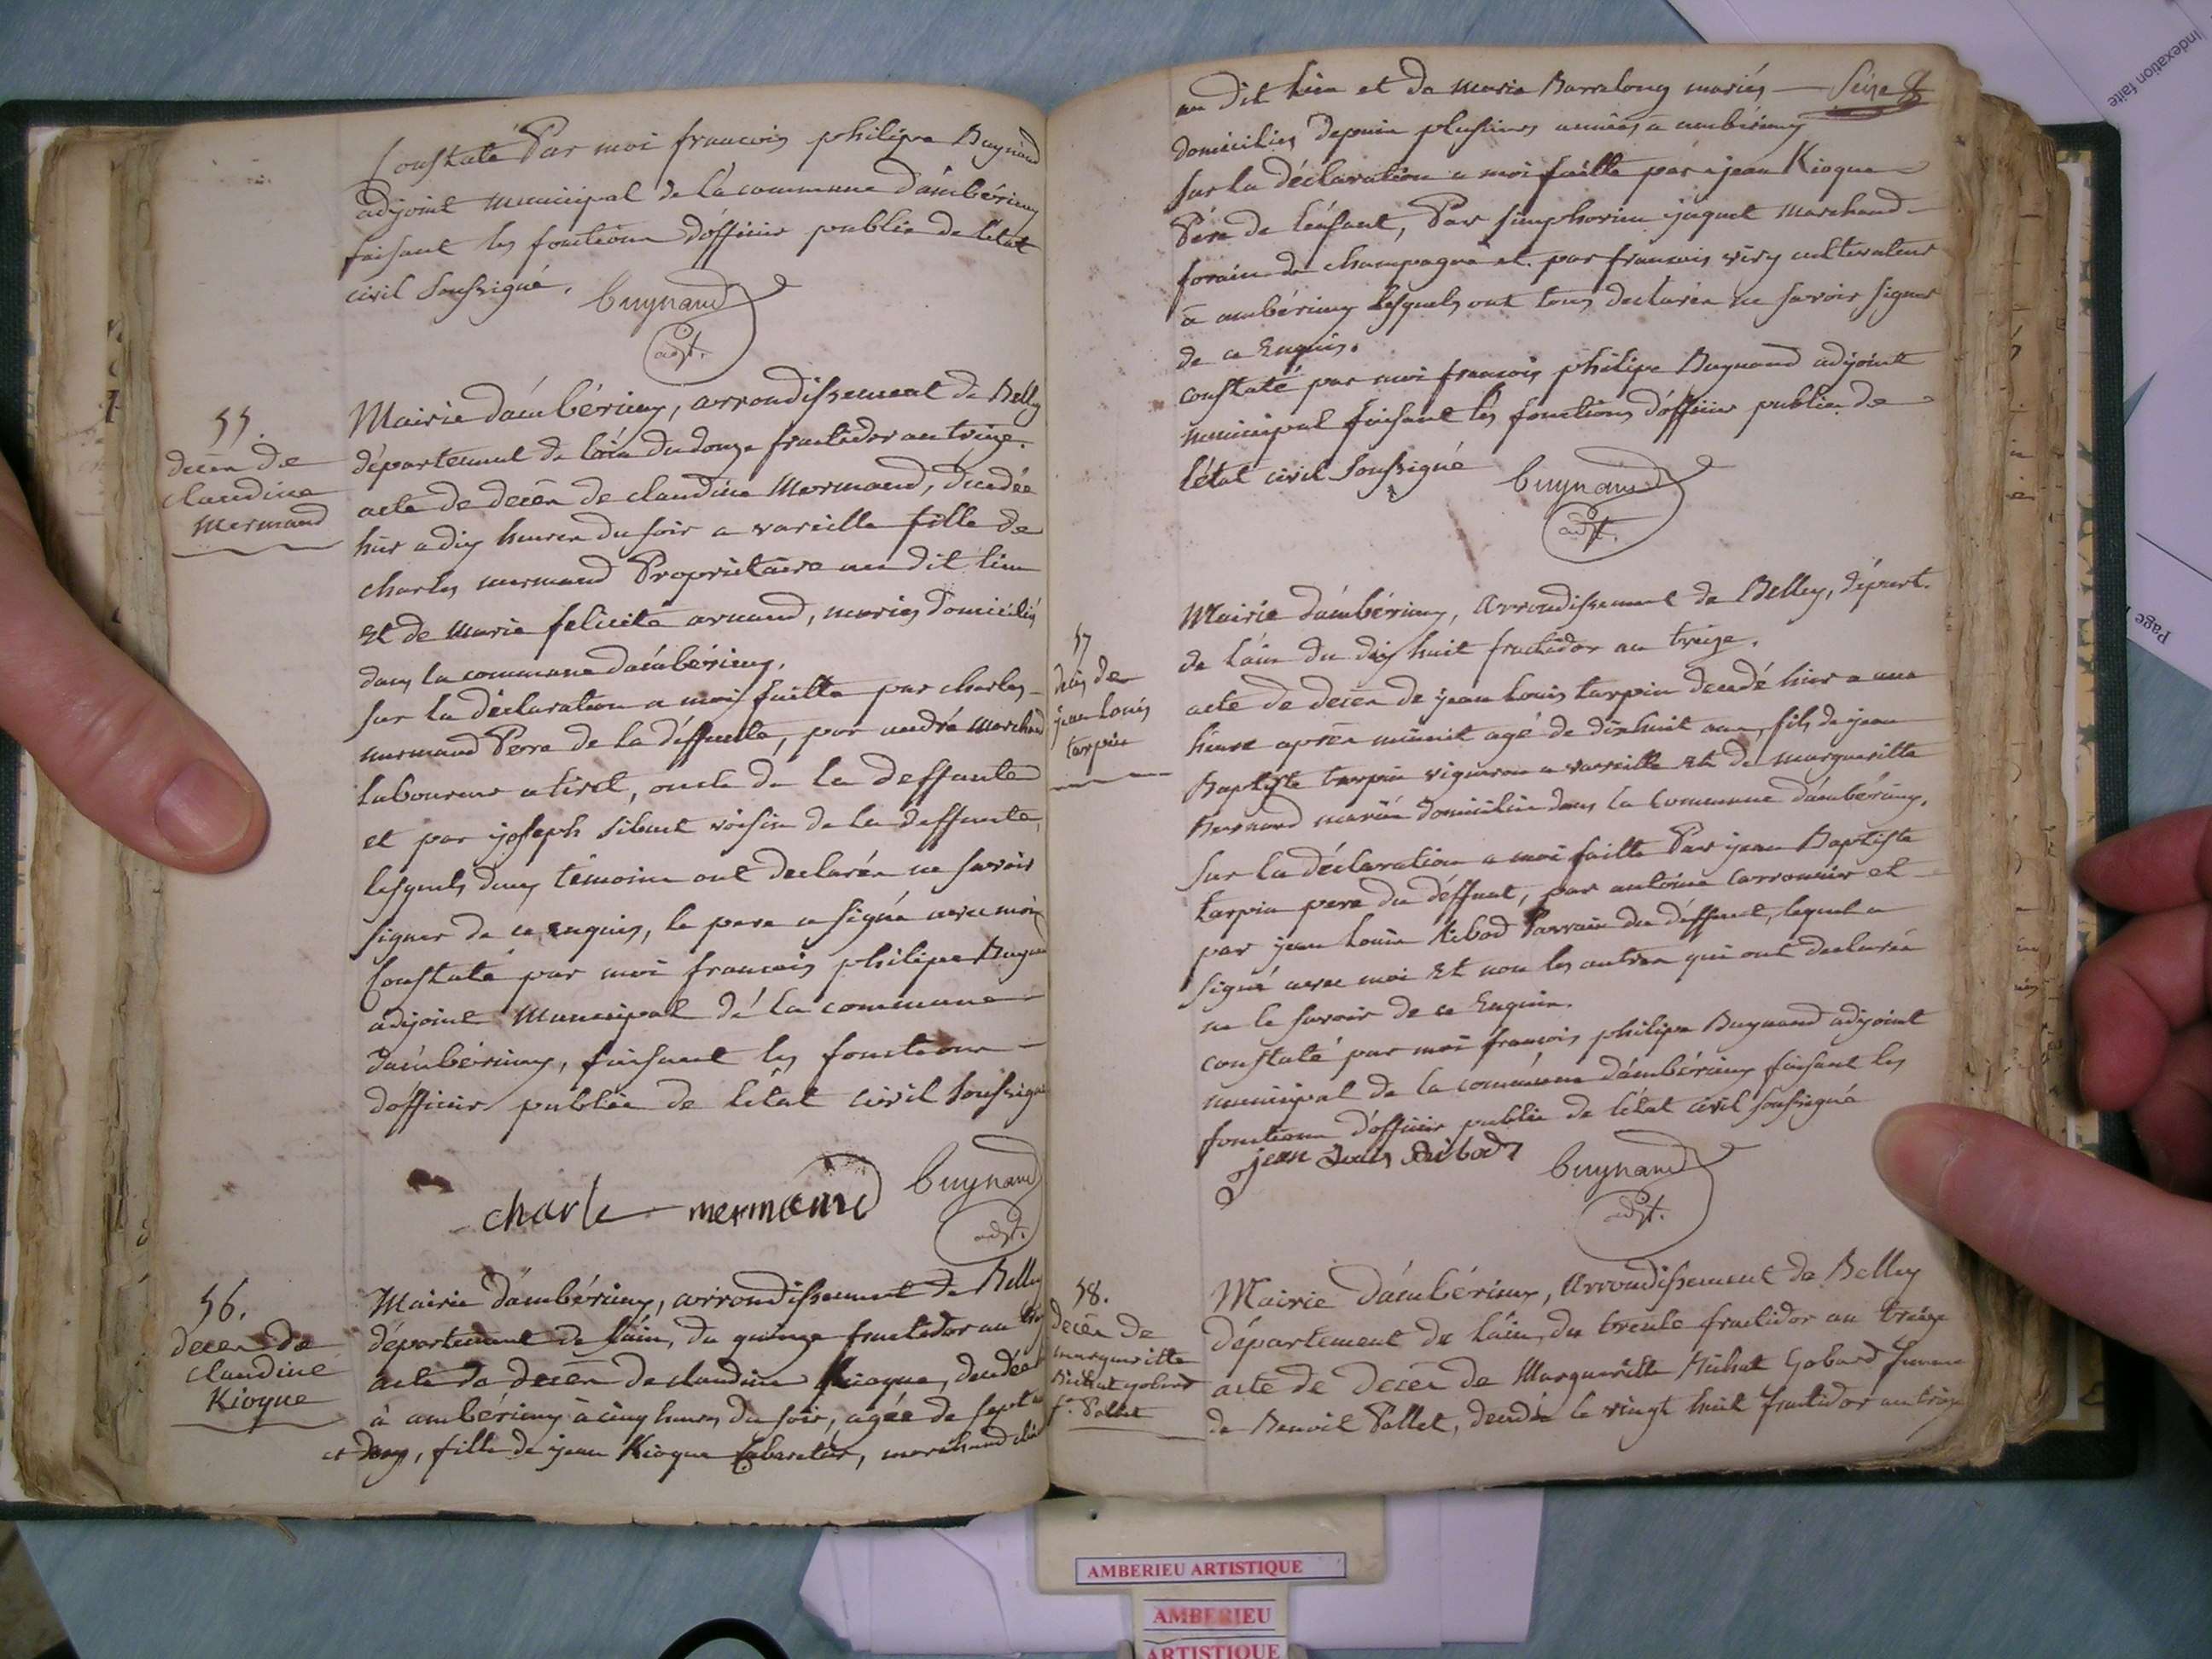 Constaté Par moi francois philipe Buynand
adjoint municipal de la commune d'ambérieux
faisant les fonctions d'officier public de l'état
civil soussigné.
buynand
adjt.
55.
decès de
claudine
Mermand
Mairie d'ambérieux, arrondissement de Belley
département de l'ain du douze fructidor an treize.
acte de decès de claudine Mermand, decedée
hier a dix heures du soir a vareille fille de
charles mermand Propriétaire au dit lieu
Et de Marie felicité arnaud, mariés domiciliés
dans la commune d'ambérieux.
sur la déclaration a moi faitte par charles
mermand Perre de la déffunte, par andré Marchand
laboureur a tiret, oncle de la deffunte
et par joseph sibuet voisin de la deffunte,
lesquels deux témoins ont declarés ne savoir
signer de ce enquis, le pere a signé avec moi
Constaté par moi francois philipe Buynand
adjoint Municipal de la commune
d'ambérieux, faisant les fonctions
d'officier public de l'état civil soussigné
charle mermand buynand
adjt.
56.
decès de
claudine
Kioque
Mairie d'ambérieux, arrondissement de Belley
département de l'ain, du quinze fructidor an
acte de decès de claudine Kioque, decedée
à ambérieux à cinq heures du soir, agée de sept
et demy, fille de jean Kioque Cabaretier, marchand
au dit lieu et de Marie Barrelong mariés — Seize
domiciliés depuis plusieurs années a ambérieux
sur la déclaration a moi faitte par jean Kioque
Père de l'enfant, Par simphorien jaquet marchand
forain de champagne et par francois viry cultivateur
à ambérieux lesquels ont tous declarés ne savoir signer
de ce Enquis.
constaté par moi francois philipe Buynand adjoint
municipal faisant les fonctions d'officier public de
l'état civil soussigné
buynand
adjt.
57
decès de
jean Louis
tarpin
Mairie d'ambérieux, Arrondissement de Belley, départ.
de l'ain du dix huit fructidor an treize.
acte de decès de jean Louis tarpin decedé hier a une
heure après minuit agé de dix huit ans, fils de jean
Baptiste tarpin vigneron a vareille Et de margueritte
Bernard mariés domiciliés dans la Commune d'ambérieux.
sur la déclaration a moi faitte Par jean Baptiste
tarpin pere du déffunt, par antoine Carronnier et
par jean Louis Ribod Parrain du déffunt, lequel a
signé avec moi Et non les autres qui ont declarés
ne le savoir de ce Enquis.
constaté par moi françois philipe Buynand adjoint
municipal de la commune d'ambérieux faisant les
fonctions d'officier public de l'état civil soussigné
jean Louis Ribod buynand
adjt.
58.
decès de
margueritte
Michat gobard
f.e Pollet
Mairie d'ambérieux, Arrondissement de Belley
département de l'ain, du trente fructidor an treize
acte de decès de Margueritte Michat Gobard femme
de Benoit Pollet, decedée le vingt huit fructidor an treize
AMBERIEU ARTISTIQUE
AMBERIEU
ARTISTIQUE
Indexation faite
Page